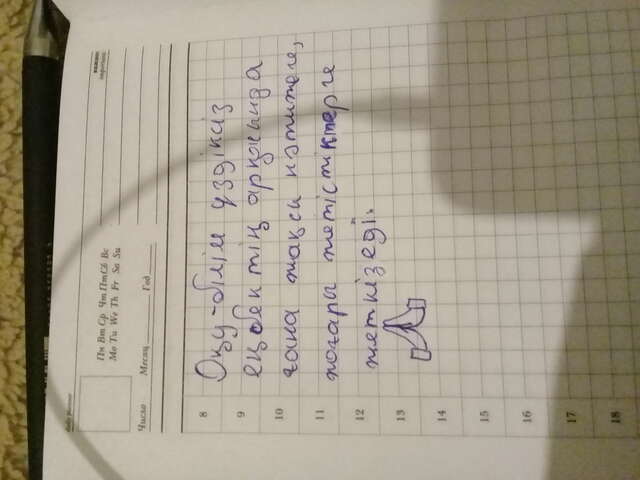 daily planner
важно
important
Пн Вт Ср Чт Пт Сб Вс
Mo Tu We Th Fr Sa Su
Число Месяц Год
8 Оқу-білім үздіксіз
9 еңбектің арқасында
10 ғана жақсы нәтижеге,
11 жоғары жетістіктерге
12 жеткізеді.
13
14
15
16
17
18